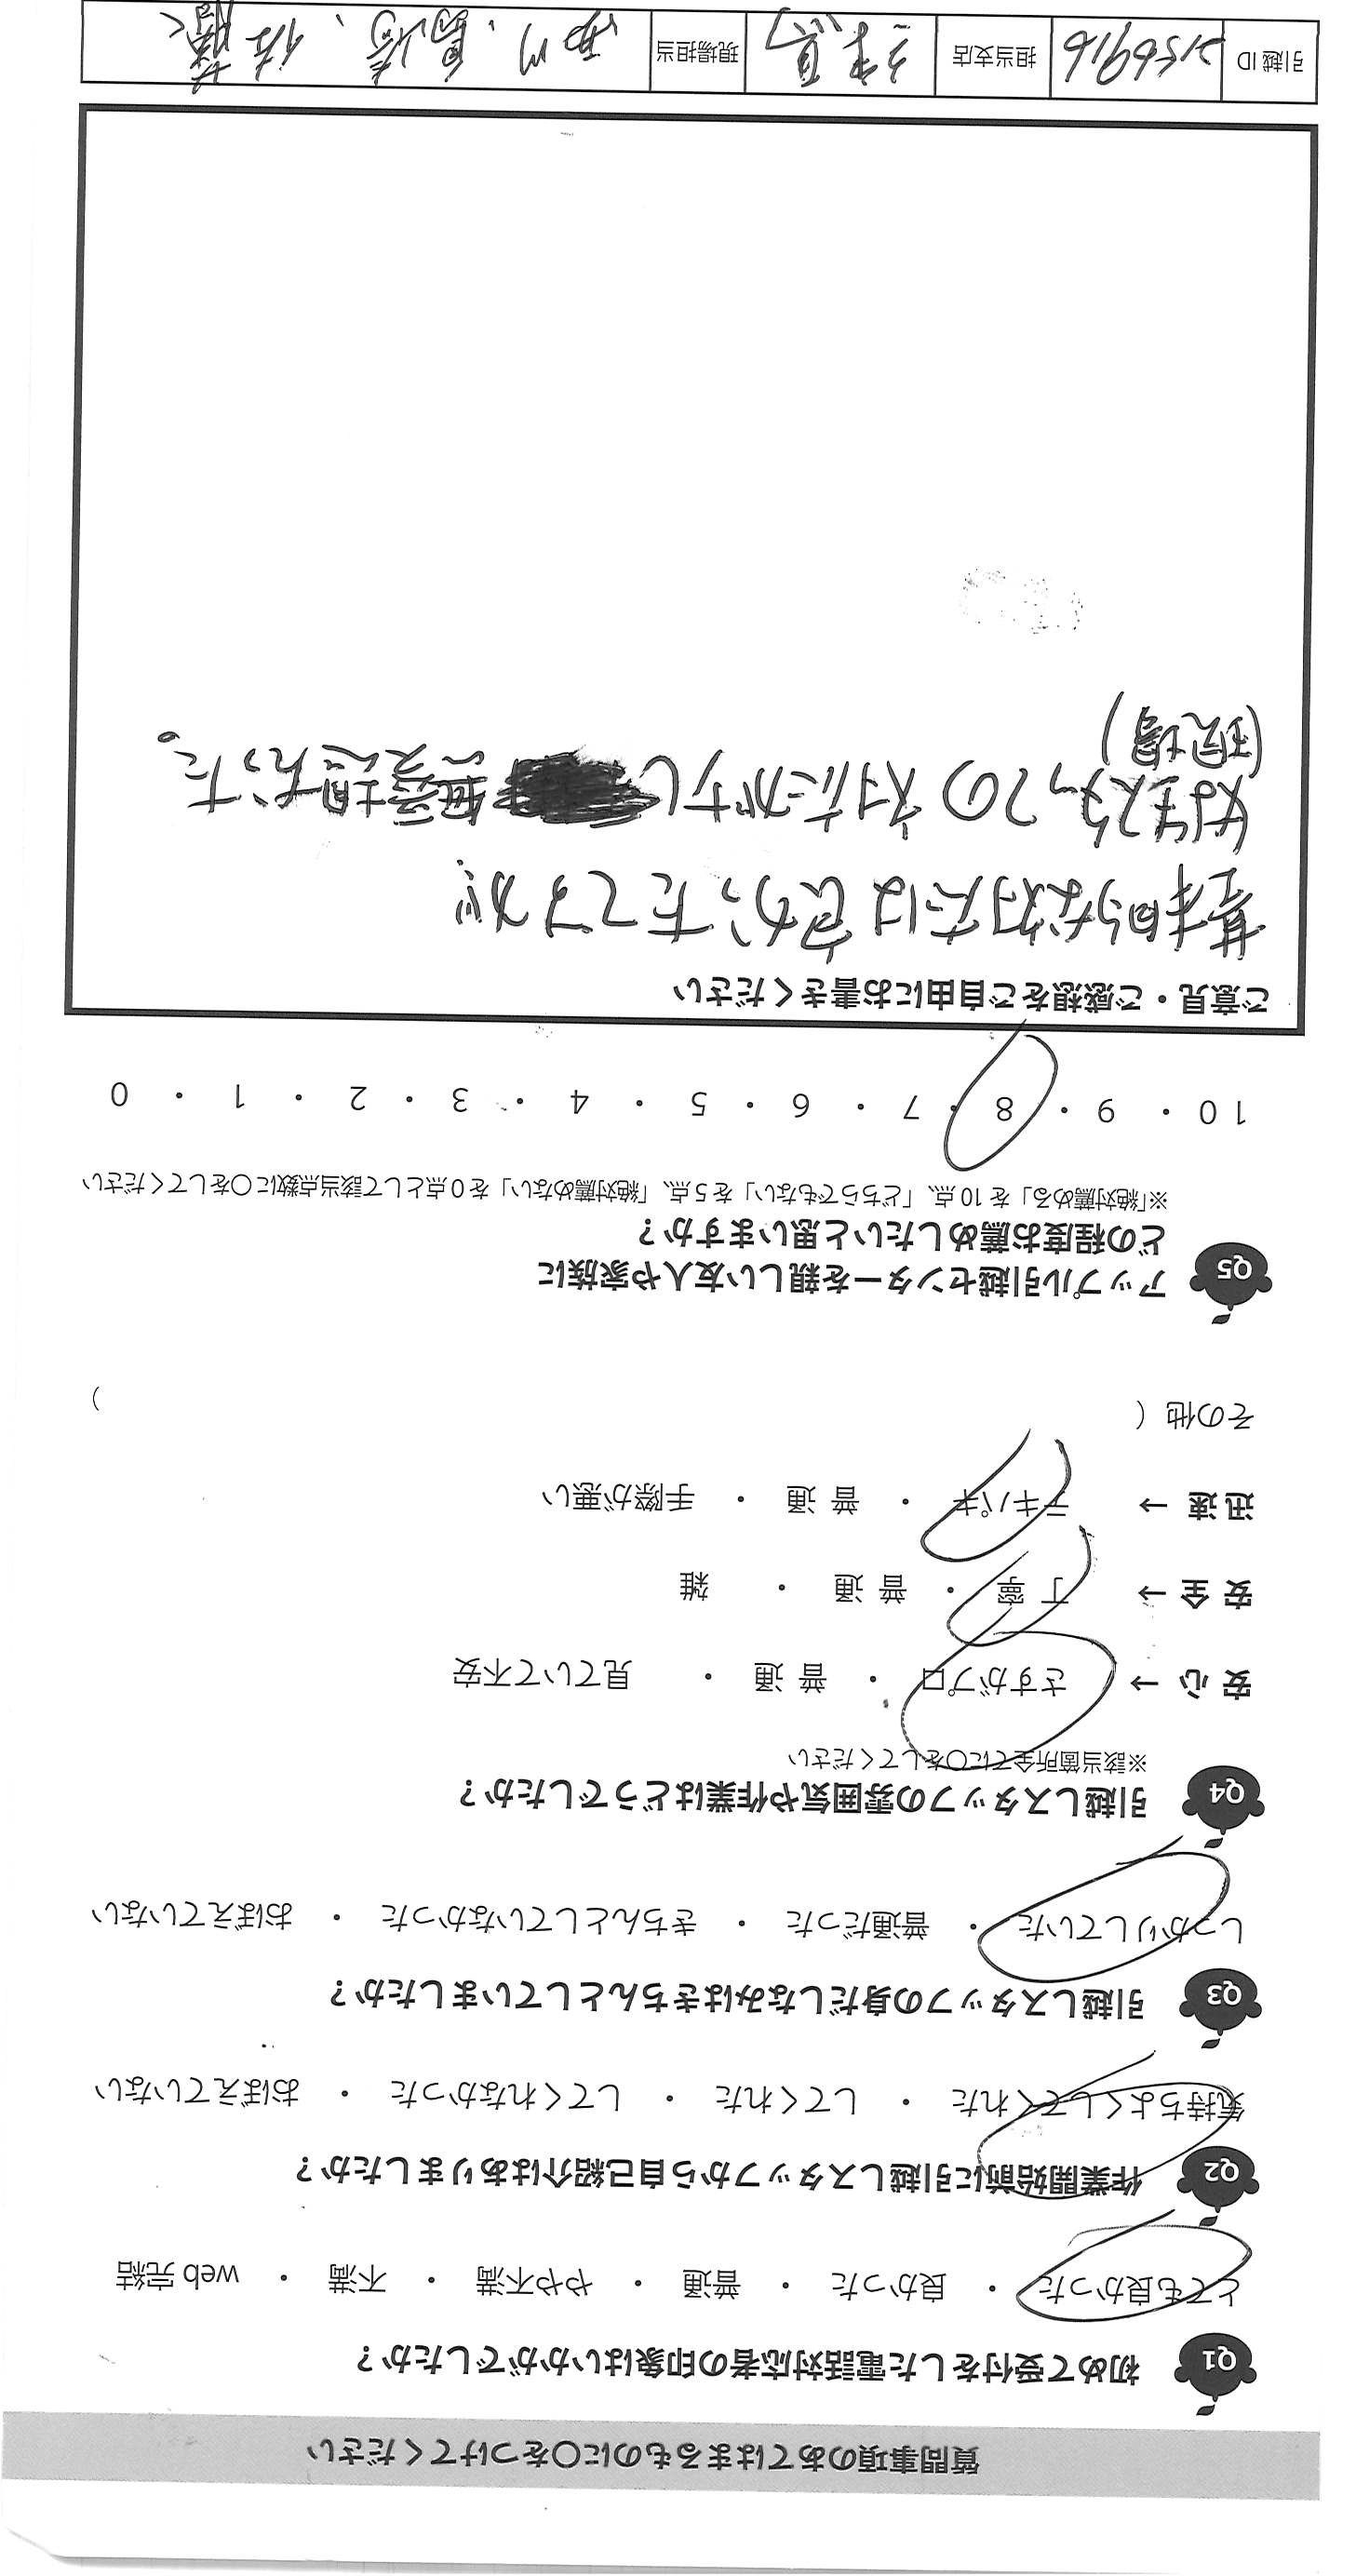 質問事項のあてはまるものに〇をつけてください
Q1 初めて受付をした電話対応者の印象はいかがでしたか？
とても良かった ・ 良かった ・ 普通 ・ やや不満 ・ 不満 ・ web 完結
Q2 作業開始前に引越しスタッフから自己紹介はありましたか？
気持ちよくしてくれた ・ してくれた ・ してくれなかった ・ おぼえていない
Q3 引越しスタッフの身だしなみはきちんとしていましたか？
しっかりしていた ・ 普通だった ・ きちんとしていなかった ・ おぼえていない
Q4 引越しスタッフの雰囲気や作業はどうでしたか？
※該当箇所全てに〇をしてください
安 心 → さすがプロ ・ 普 通 ・ 見ていて不安
安 全 → 丁 寧 ・ 普 通 ・ 雑
迅 速 → テキパキ ・ 普 通 ・ 手際が悪い
その他（ ）
Q5 アップル引越センターを親しい友人や家族に
どの程度お薦めしたいと思いますか？
※「絶対薦める」を 10 点、「どちらでもない」を 5 点、「絶対薦めない」を 0 点として該当点数に〇をしてください
10 ・ 9 ・ 8 ・ 7 ・ 6 ・ 5 ・ 4 ・ 3 ・ 2 ・ 1 ・ 0
ご意見・ご感想をご自由にお書きください
基本的な対応は良かったですが
女性スタッフの対応が少し 無愛想だった。
(現場)
引越 ID 2156916 担当支店 練馬 現場担当 西川、島崎、佐藤